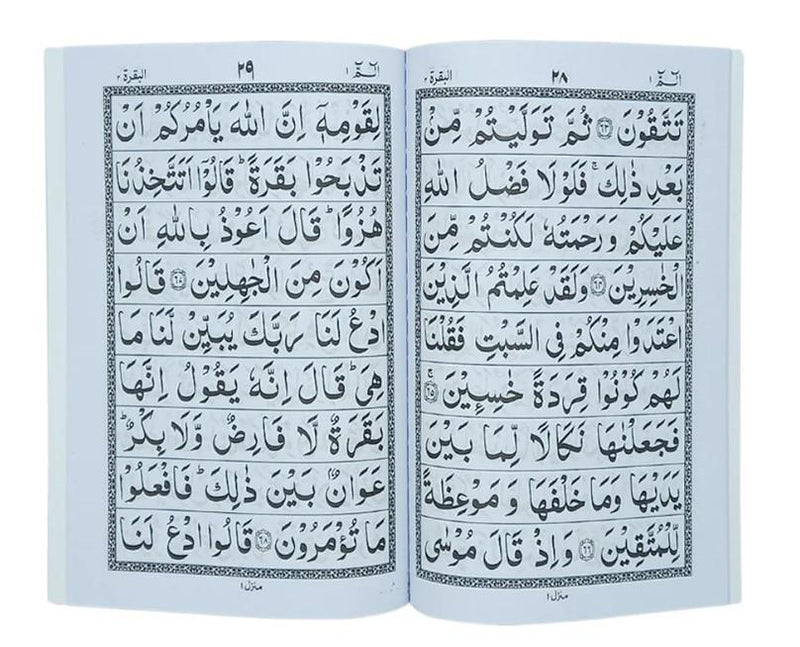 الٓمّٓ ١ ٢٨ البقرة ٢
تَتَّقُوْنَ ﴿٦٣﴾ ثُمَّ تَوَلَّيْتُمْ مِّنْۢ
بَعْدِ ذٰلِكَ ۚ فَلَوْلَا فَضْلُ اللّٰهِ
عَلَيْكُمْ وَرَحْمَتُهٗ لَكُنْتُمْ مِّنَ
الْخٰسِرِيْنَ ﴿٦٤﴾ وَلَقَدْ عَلِمْتُمُ الَّذِيْنَ
اعْتَدَوْا مِنْكُمْ فِى السَّبْتِ فَقُلْنَا
لَهُمْ كُوْنُوْا قِرَدَةً خٰسِـِٕيْنَ ۚ ﴿٦٥﴾
فَجَعَلْنٰهَا نَكَالًا لِّمَا بَيْنَ
يَدَيْهَا وَمَا خَلْفَهَا وَ مَوْعِظَةً
لِّلْمُتَّقِيْنَ ﴿٦٦﴾ وَاِذْ قَالَ مُوْسٰى
منزل ١
الٓمّٓ ١ ٢٩ البقرة ٢
لِقَوْمِهٖٓ اِنَّ اللّٰهَ يَاْمُرُكُمْ اَنْ
تَذْبَحُوْا بَقَرَةً ؕ قَالُوْٓا اَتَتَّخِذُنَا
هُزُوًا ؕ قَالَ اَعُوْذُ بِاللّٰهِ اَنْ
اَكُوْنَ مِنَ الْجٰهِلِيْنَ ﴿٦٧﴾ قَالُوا
ادْعُ لَنَا رَبَّكَ يُبَيِّنْ لَّنَا مَا
هِىَ ؕ قَالَ اِنَّهٗ يَقُوْلُ اِنَّهَا
بَقَرَةٌ لَّا فَارِضٌ وَّلَا بِكْرٌ ؕ
عَوَانٌۢ بَيْنَ ذٰلِكَ ؕ فَافْعَلُوْا
مَا تُؤْمَرُوْنَ ﴿٦٨﴾ قَالُوا ادْعُ لَنَا
منزل ١